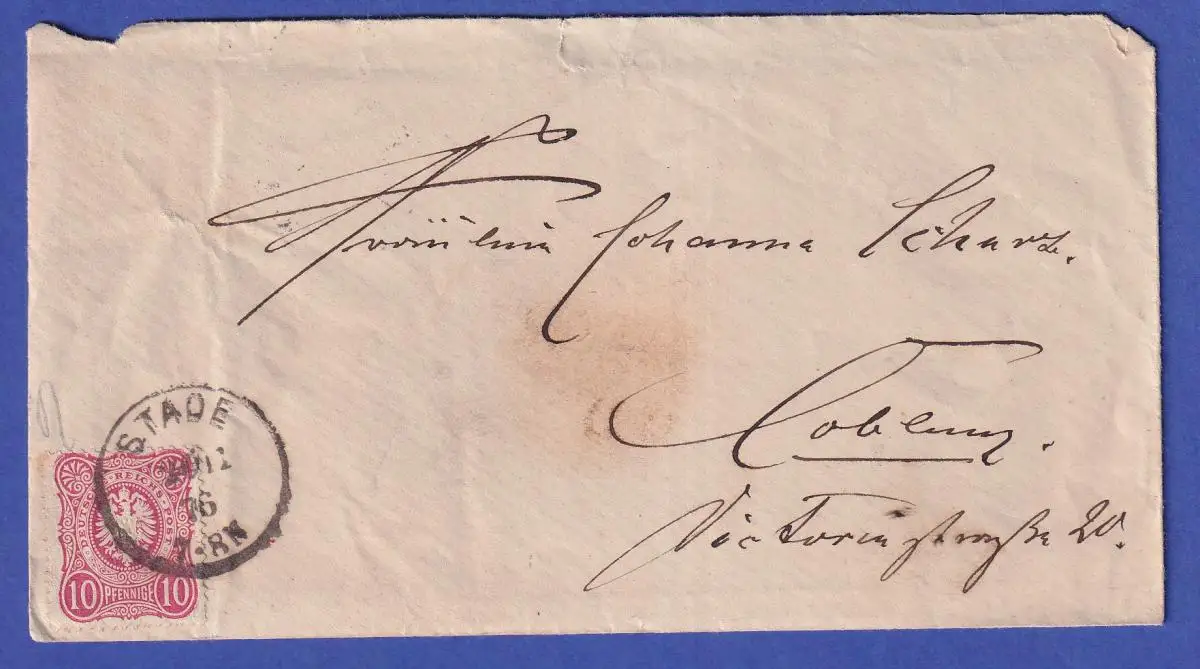 Fräulein Johanna Scharz.
Coblenz.
Victoriastraße 20.
STADE
12
76
8 N
DEUTSCHE REICHS-POST
10 PFENNIGE 10